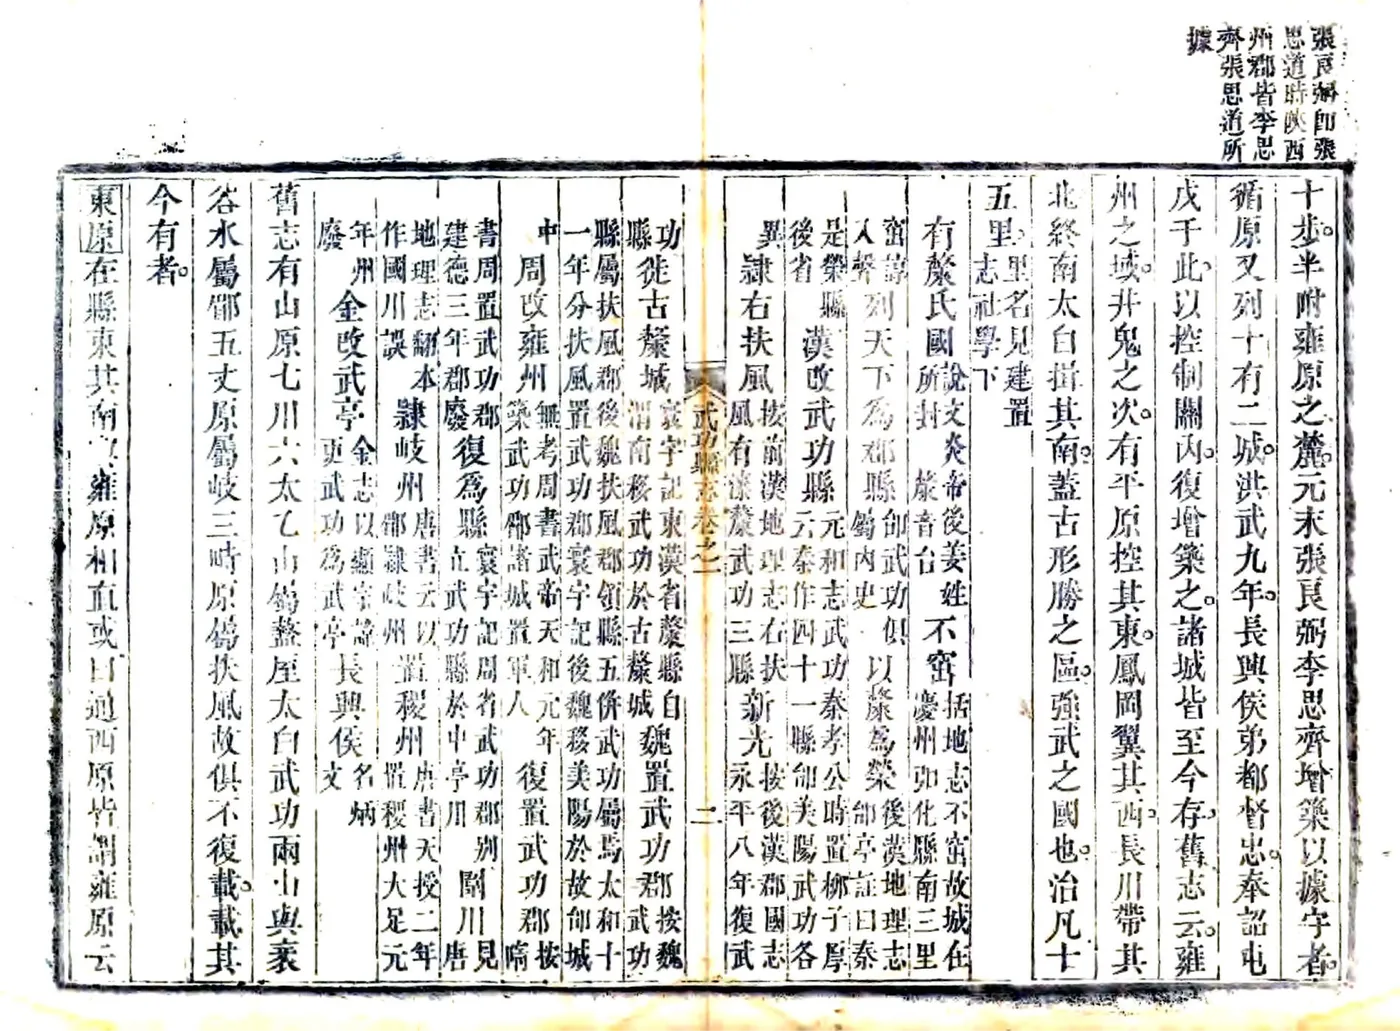 張良弼卽張
思道時陜西
州郡皆李思
齊張思道所
據
十步半附雍原之麓元末張良弼李思齊增築以據守者
循原又列十有二城洪武九年長興侯弟都督忠奉詔屯
戍于此以控制關內復增築之諸城皆至今存舊志云雍
州之域井鬼之次有平原控其東鳳岡翼其西長川帶其
北終南太白揖其南蓋古形勝之區强武之國也治凡十
五里里名見建置
志社學下
有斄氏國說文炎帝後姜姓
所封 斄音台不窋括地志不窋故城在
慶州弘化縣南三里
窋諱
入聲列天下爲郡縣卽武功俱
屬內史以斄爲榮後漢地理志
郃亭註曰秦
是榮縣
後省漢改武功縣元和志武功秦孝公時置栁子厚
云秦作四十一縣郃美陽武功各
異隷右扶風按前漢地理志右扶
風有漆斄武功三縣新光按後漢郡國志
永平八年復武
武功縣志卷之一
二
功
縣徙古斄城寰宇記東漢省斄縣自
渭南移武功於古斄城魏置武功郡按魏
武功
縣屬扶風郡後魏扶風郡領縣五倂武功屬焉太和十
一年分扶風置武功郡寰宇記後魏移美陽於故郃城
中周改雍州無考周書武帝天和元年
築武功郿諸城置軍人復置武功郡按
隋
書周置武功郡
建德三年郡廢復爲縣寰宇記周省武功郡別
立武功縣於中亭川關川見
唐
地理志翻本
作國川誤隷岐州唐書云以
郿隷岐州置稷州唐書天授二年
置稷州大足元
年州
廢金改武亭金志以顯宇諱
更武功爲武亭長興侯名炳
文
舊志有山原七川六太乙山屬盩厔太白武功兩山與褒
谷水屬郿五丈原屬岐三畤原屬扶風故俱不復載載其
今有者
東原在縣東其南與雍原相直或曰迤西原皆謂雍原云